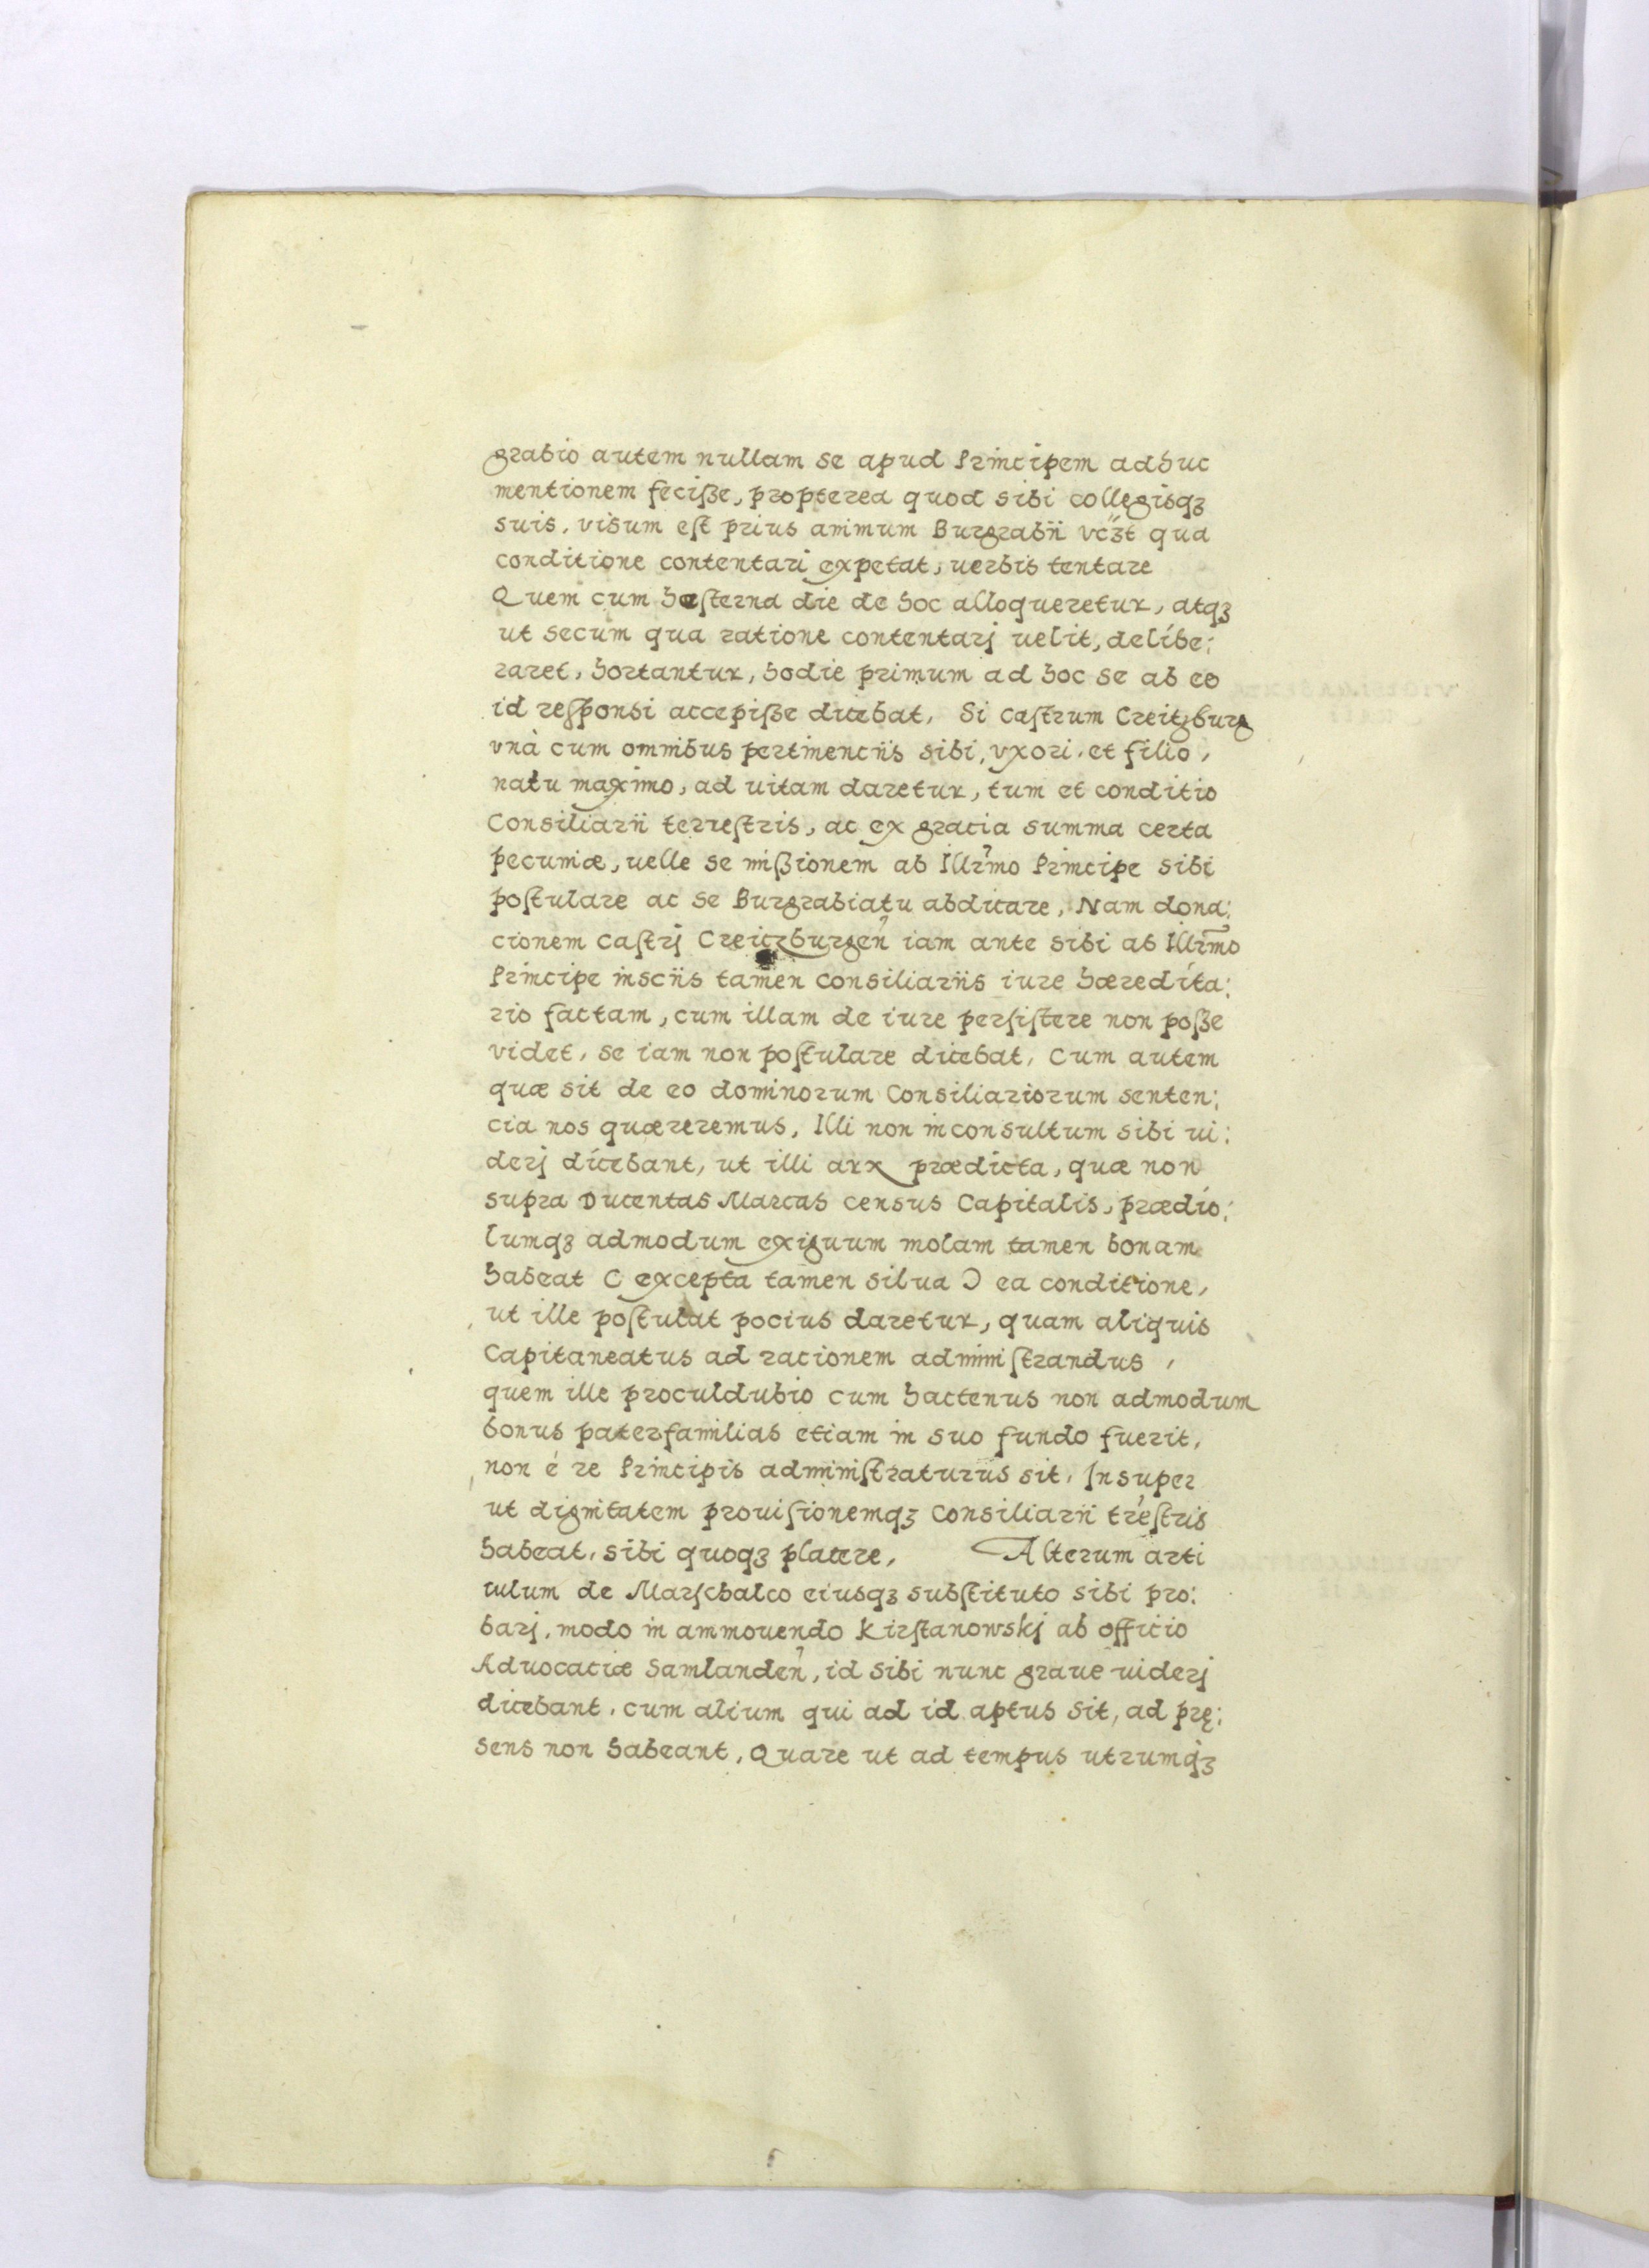 grabio autem nullam se apud Principem adhuc
mentionem feciße, propterea quod sibi collegisqꝫ
suis, visum eſt prius animum Burgrabii vcꝫt qua
conditione contentari expetat, uerbis tentare
Quem cum heſterna die de hoc alloqueretur, atqꝫ
ut secum qua ratione contentarj uelit, delibe:
raret, hortantur, hodie primum ad hoc se ab eo
id reſponsi accepiße dicebat, Si Caſtrum Creitzburg
vnà cum omnibus pertinenciis sibi, vxori, et filio,
natu maximo, ad uitam daretur, tum et conditio
Consiliarii terreſtris, ac ex gracia summa certa
pecuniæ, uelle se mißionem ab Illrmo Principe sibi
poſtulare ac se Burgrabiatu abdicare, Nam dona:
cionem Caſtrj Creitzburgen iam ante sibi ab Illrmo
Principe insciis tamen Consiliariis iure hæredita:
rio factam, cum illam de iure perſiſtere non poße
videt, se iam non poſtulare dicebat, Cum autem
quæ sit de eo dominorum Consiliariorum senten:
cia nos quæreremus, Illi non inconsultum sibi ui:
derj dicebant, ut illi arx prædicta, quæ non
supra Ducentas Marcas census Capitalis, prædio:
lumqꝫ admodum exiguum molam tamen bonam
habeat ( excepta tamen silua ) ea conditione,
ut ille poſtulat pocius daretur, quam aliquis
Capitaneatus ad racionem adminiſtrandus,
quem ille proculdubio cum hactenus non admodum
bonus paterfamilias etiam in suo fundo fuerit,
non é re Principis adminiſtraturus sit, Insuper
ut dignitatem prouiſionemqꝫ Consiliarii treſtris
habeat, sibi quoqꝫ placere, Alterum arti
culum de Marſchalco eiusqꝫ subſtituto sibi pro:
barj, modo in ammouendo Kirſtanowskj ab officio
Aduocaciæ Samlanden, id sibi nunc graue uiderj
dicebant, cum alium qui ad id aptus sit, ad prę:
sens non habeant, Quare ut ad tempus utrumqꝫ